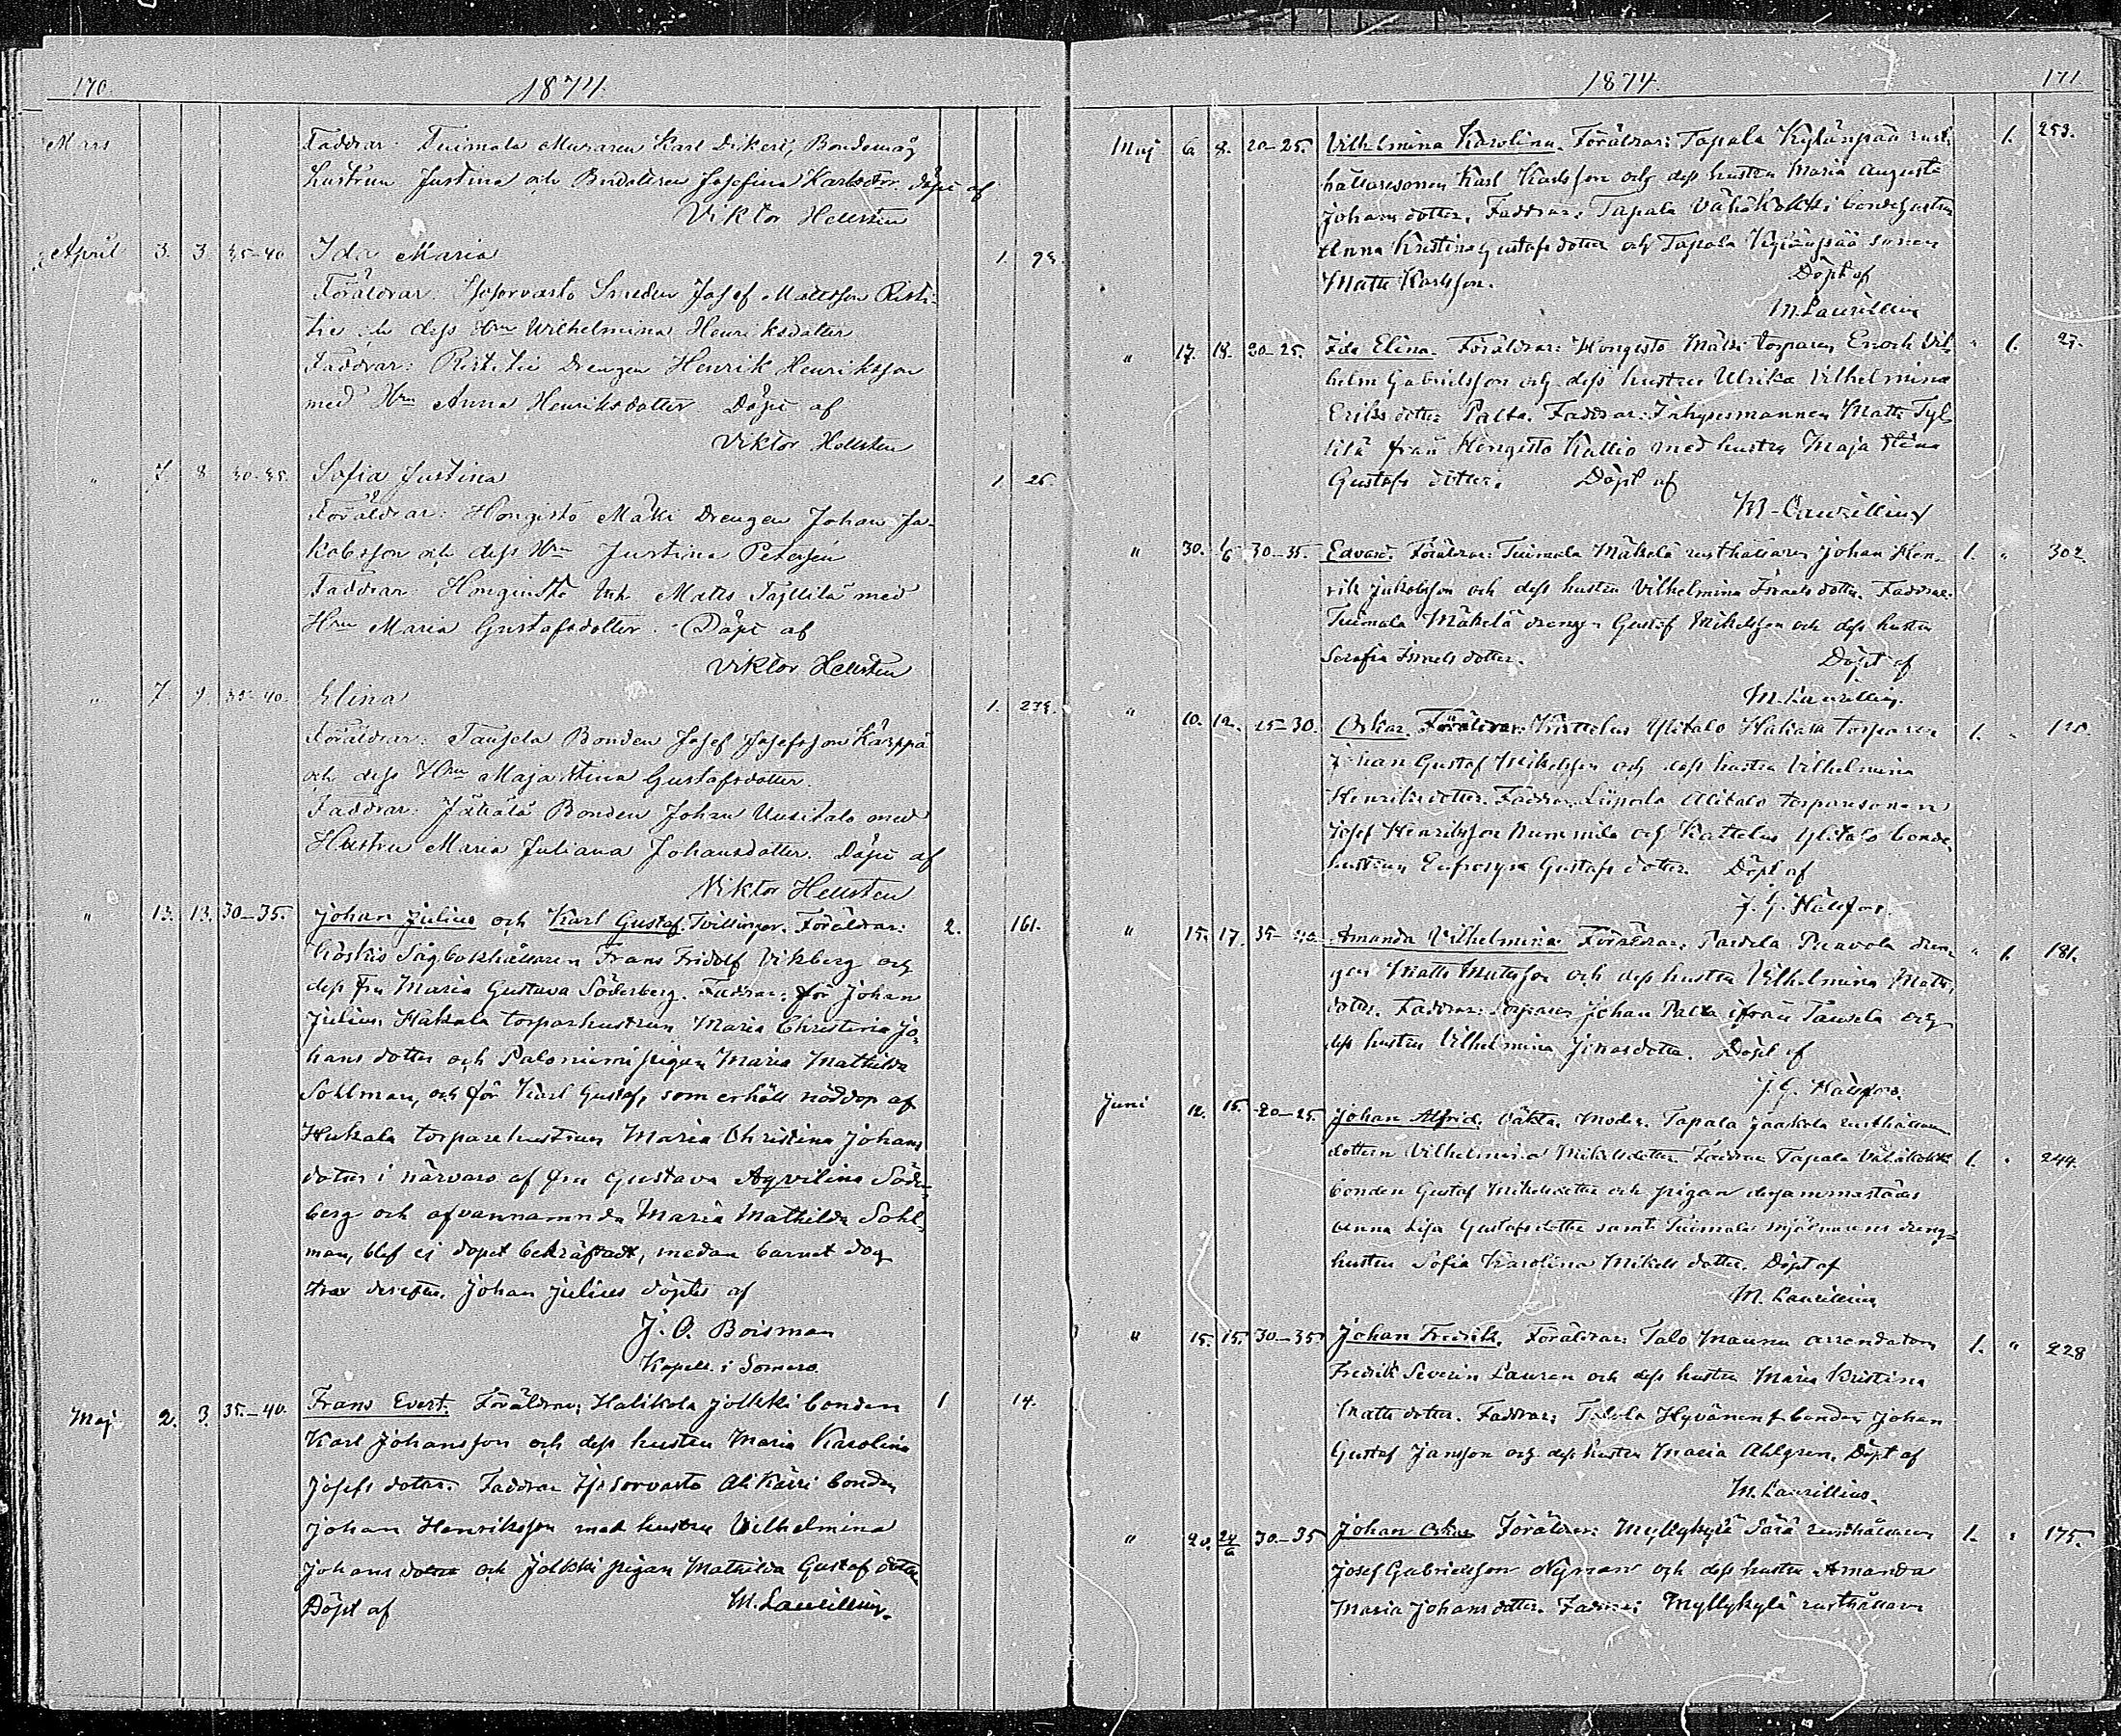 170. 1874.
Mars Faddrar: Tuimala Muraren Karl Dikert, Bondemåg
hustrun Justina och Bondottren Josefina Karlsdr. Döpt af
Viktor Hellsten
April 3. 3. 35-40 Ida Maria 1. 98.
Föräldrar: Ihsorvasto Smeden Josef Mattsson Risti-
tie och dess Hru Wilhelmina Henriksdotter
Faddrar: Ristitie Drengen Henrik Henriksson
med Hru Anna Henriksdotter. Döpt af
Viktor Hellsten
" 7. 8. 30-35. Sofia Justina 1. 26.
Föräldrar: Hongisto Mäki Drengen Johan Ja-
kobsson och dess Hru Justina Petersén
Faddrar: Matts med
Hru Maria Gustafsdotter. Döpt af
Viktor Hellsten
" 7. 9. 35-40. Elina 1. 279.
Föräldrar: Taufela Bonden Josef Josefsson Karppa
och dess Hru Maja Stina Gustafsdotter.
Faddrar: Jätiälä Bonden Johan Uusitalo med
Hustru Maria Juliana Johansdotter. Döpt af
Viktor Hellsten
" 13. 13. 30-35. Johan Julius och Karl Gustaf. Tvillingar. Föräldrar: 2. 161.
Koskis Sågbokhållaren Frans Fridolf Vikberg och
dess fru Maria Gustava Söderberg. Faddrar: för Johan
Julius, Hakala torparhustrun Maria Christina Jo-
hans dotter och Paloniemi pigan Maria Mathilda
Sohlman, och för Karl Gustaf, som erhöll nöddop af
Hakala torparehustrun Maria Christina Johans
dotter i närvaro af fru Gustava Aqvilina Söder-
berg och ofvannämnda Maria Mathilda Sohl-
man, blef ej dopet bekräftadt, medan barnet dog
strax derefter. Johan Julius döptes af
J. O. Boisman
Kapell. i Somero.
Maj 2. 3. 35-40. Frans Evert. Föräldrar: Halikola Jolkki bonden 1 14.
Karl Johansson och dess hustru Maria Karolina
Josefs dotter. Faddrar Ihsorvasto Ali Kärri bonden
Johan Henriksson med hustru Vilhelmina
Johans dotter och Jolkki pigan Mathilda Gustaf dotter
Döpt af M. Laurellius.
1874. 171
Maj 6. 8. 20-25. Vilhelmina Karolina. Föräldrar: Tapala Kylänpää rust- 1. 253.
hållaresonen Karl Karlsson och dess hustru Maria Augusta
Johans dotter. Faddrar: Tapala Vähäkokki bondehustrun
Anna Kristina Gustafs dotter och Tapala Kylänpää sonen
Matts Karlsson. Döpt af
M. Laurellius
" 17. 18. 20-25. Ida Elina. Föräldrar: Hongisto Mäki torparen Enoch Vil- " 1. 27.
helm Gabrielsson och dess hustru Ulrika Vilhelmina
Eriks dotter Palta. Faddrar: Inhysesmannen Matts
från Hongisto Kallio med hustru Maja Stina
Gustafs dotter. Döpt af
M. Laurellius
" 30. 1/6 30-35. Edvard. Föräldrar: Tuimala Mäkelä rusthållaren Johan Hen- 1. " 302
rik Jakobsson och dess hustru Vilhelmina Israels dotter. Faddrar:
Tuimala Mäkelä drengen Gustaf Mikelsson och dess hustru
Serafia Israels dotter. Döpt af
M. Laurellius.
" 10. 12. 25-30. Oskar. Föräldrar: Kerttelus Ylitalo Hakala torparen 1. "
Johan Gustaf Mikelsson och dess hustru Vilhelmina
Henriks dotter. Faddrar: Alitalo torparesonen
Josef Henriksson Nummila och Kattelus Ylitalo bonde-
hustrun Eufrosyne Gustafs dotter. Döpt af
J. G. Hällfors.
" 15. 17. 35-40. Amanda Vilhelmina. Föräldrar: Pavola dren- " 1. 181.
gen Matts Mattsson och dess hustru Vilhelmina Matts
dotter. Faddrar: torparen Johan Palta ifrån Tausela och
dess hustru Vilhelmina Jonasdotter. Döpt af
J. G. Hällfors.
Juni 12. 15. 20-25. Johan Alfrid. Oäkta. Moder: Tapala Jaakola rusthållare
dottern Vilhelmina Mikelsdotter. Faddrar Tapala Vähäkokki 1. " 244.
bonden Gustaf Mikelsdotter och pigan dersammastädes
Anna Lisa Gustafsdotter samt Tuimala mjölnarens dreng-
hustru Sofia Karolina Mikels dotter. Döpt af
M. Laurellius
" 15. 15. 30-35 Johan Fredrik. Föräldrar: Talo Maunu arrendatorn 1. " 228
Fredrik Severin Lauren och dess hustru Maria Kristina
Matts dotter. Faddrar: Talola Hyvänen f. bonden Johan
Gustaf Jansson och dess hustru Maria Ahlgren. Döpt af
M. Laurellius.
" 20. 24/6 30-35 Johan Oskar Föräldrar: Myllykylä Särä rusthållaren 1. " 175.
Josef Gabrielsson Nyman och dess hustru Amanda
Maria Johans dotter. Faddrar: Myllykylä rusthållare